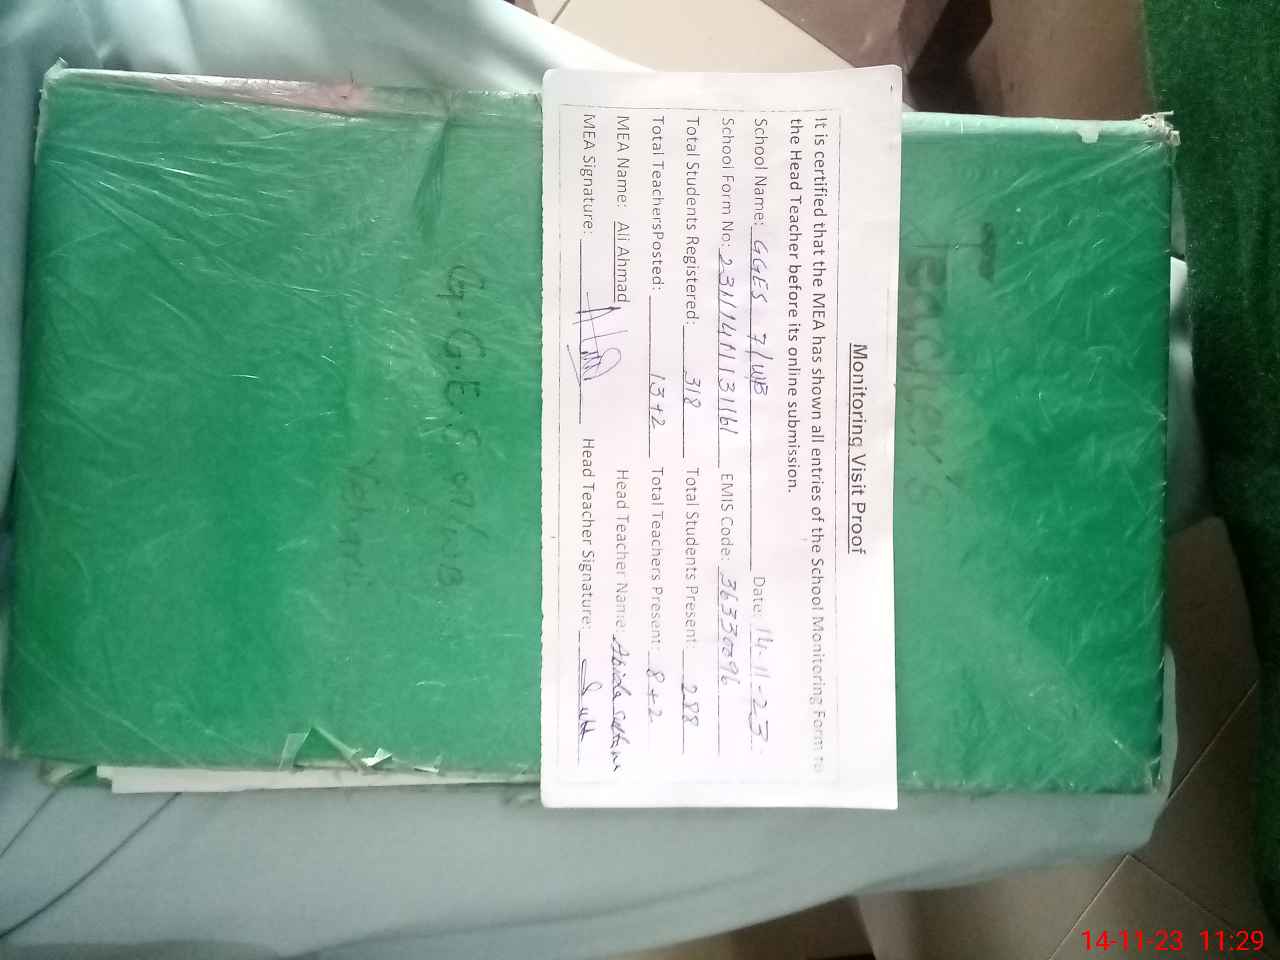 Monitoring Visit Proof
It is certified that the MEA has shown all entries of the School Monitoring Form to
the Head Teacher before its online submission.
School Name: GGES 7/WB Date: 14-11-23
School Form No: EMIS Code: 36330096
Total Students Registered: 318 Total Students Present: 288
Total TeachersPosted: 13+2 Total Teachers Present: 8+2
MEA Name: Ali Ahmad Head Teacher Name: Abida Sultana
MEA Signature: Head Teacher Signature:
Teacher's
G.G.E.S 07/WB
Vehari
14-11-23 11:29